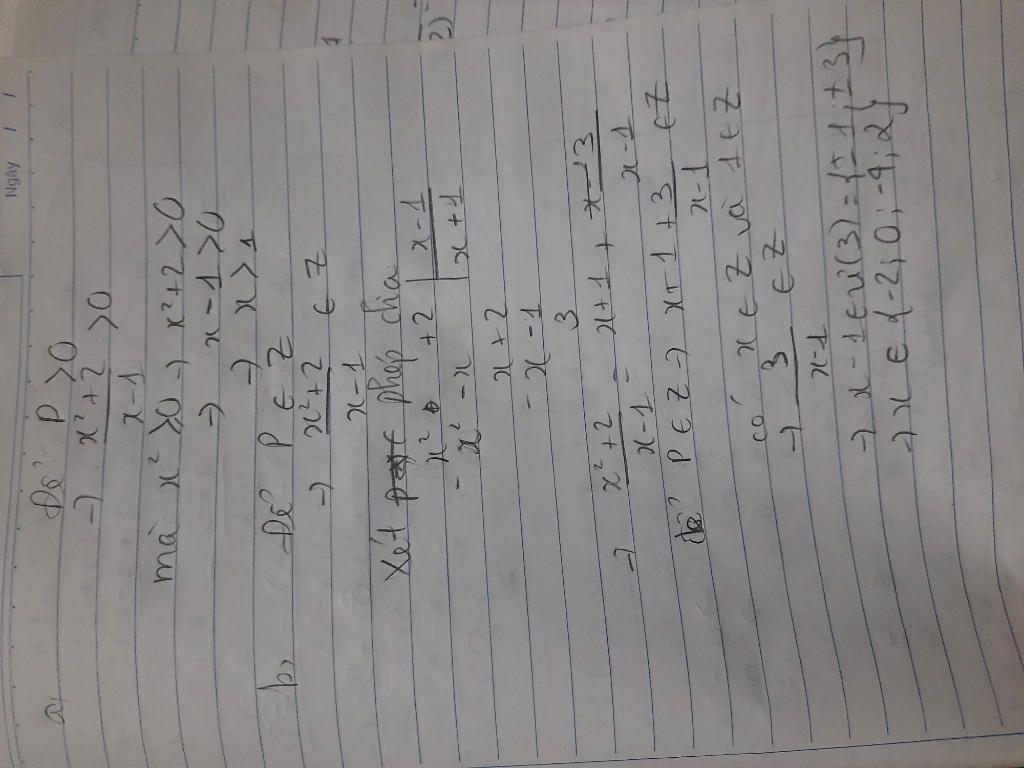 Ngày / /
a, Để P > 0
→ x²+2/x-1 > 0
mà x² ≥ 0 → x²+2 > 0
→ x-1 > 0
→ x > 1
b, Để P ∈ Z
→ x²+2/x-1 ∈ Z
Xét phép chia
x² +2 | x-1
- x² - x | x+1
x+2
- x-1
3
→ x²+2/x-1 = x+1 + 3/x-1
Để P ∈ Z → x+1 + 3/x-1 ∈ Z
có x ∈ Z và 1 ∈ Z
→ 3/x-1 ∈ Z
→ x-1 ∈ Ư(3) = {±1; ±3}
→ x ∈ {-2; 0; -4; 2}